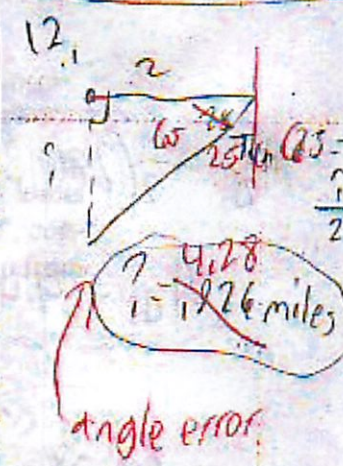 12.
2
?
65
25° Tan (65 =
?
2
4.28
? = .926 miles
angle error